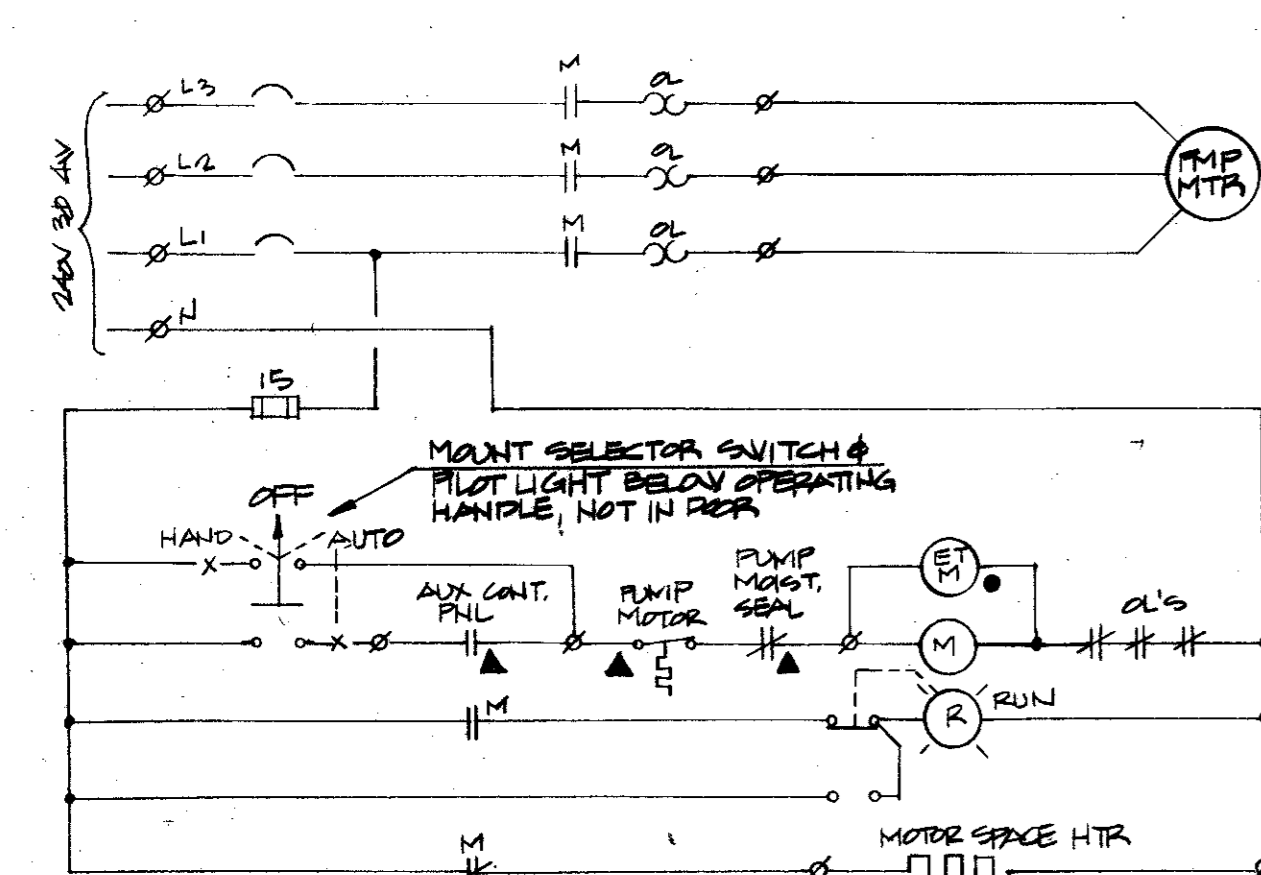 M
OL
L3
M
OL
L2
PMP
MTR
M
OL
L1
240V 3Ø 4W
N
15
MOUNT SELECTOR SWITCH &
PILOT LIGHT BELOW OPERATING
HANDLE, NOT IN DOOR
OFF
HAND
AUTO
X
AUX CONT.
PNL
PUMP
MOTOR
PUMP
MOIST,
SEAL
ET
M
OL'S
X
M
M
R
RUN
M
MOTOR SPACE HTR